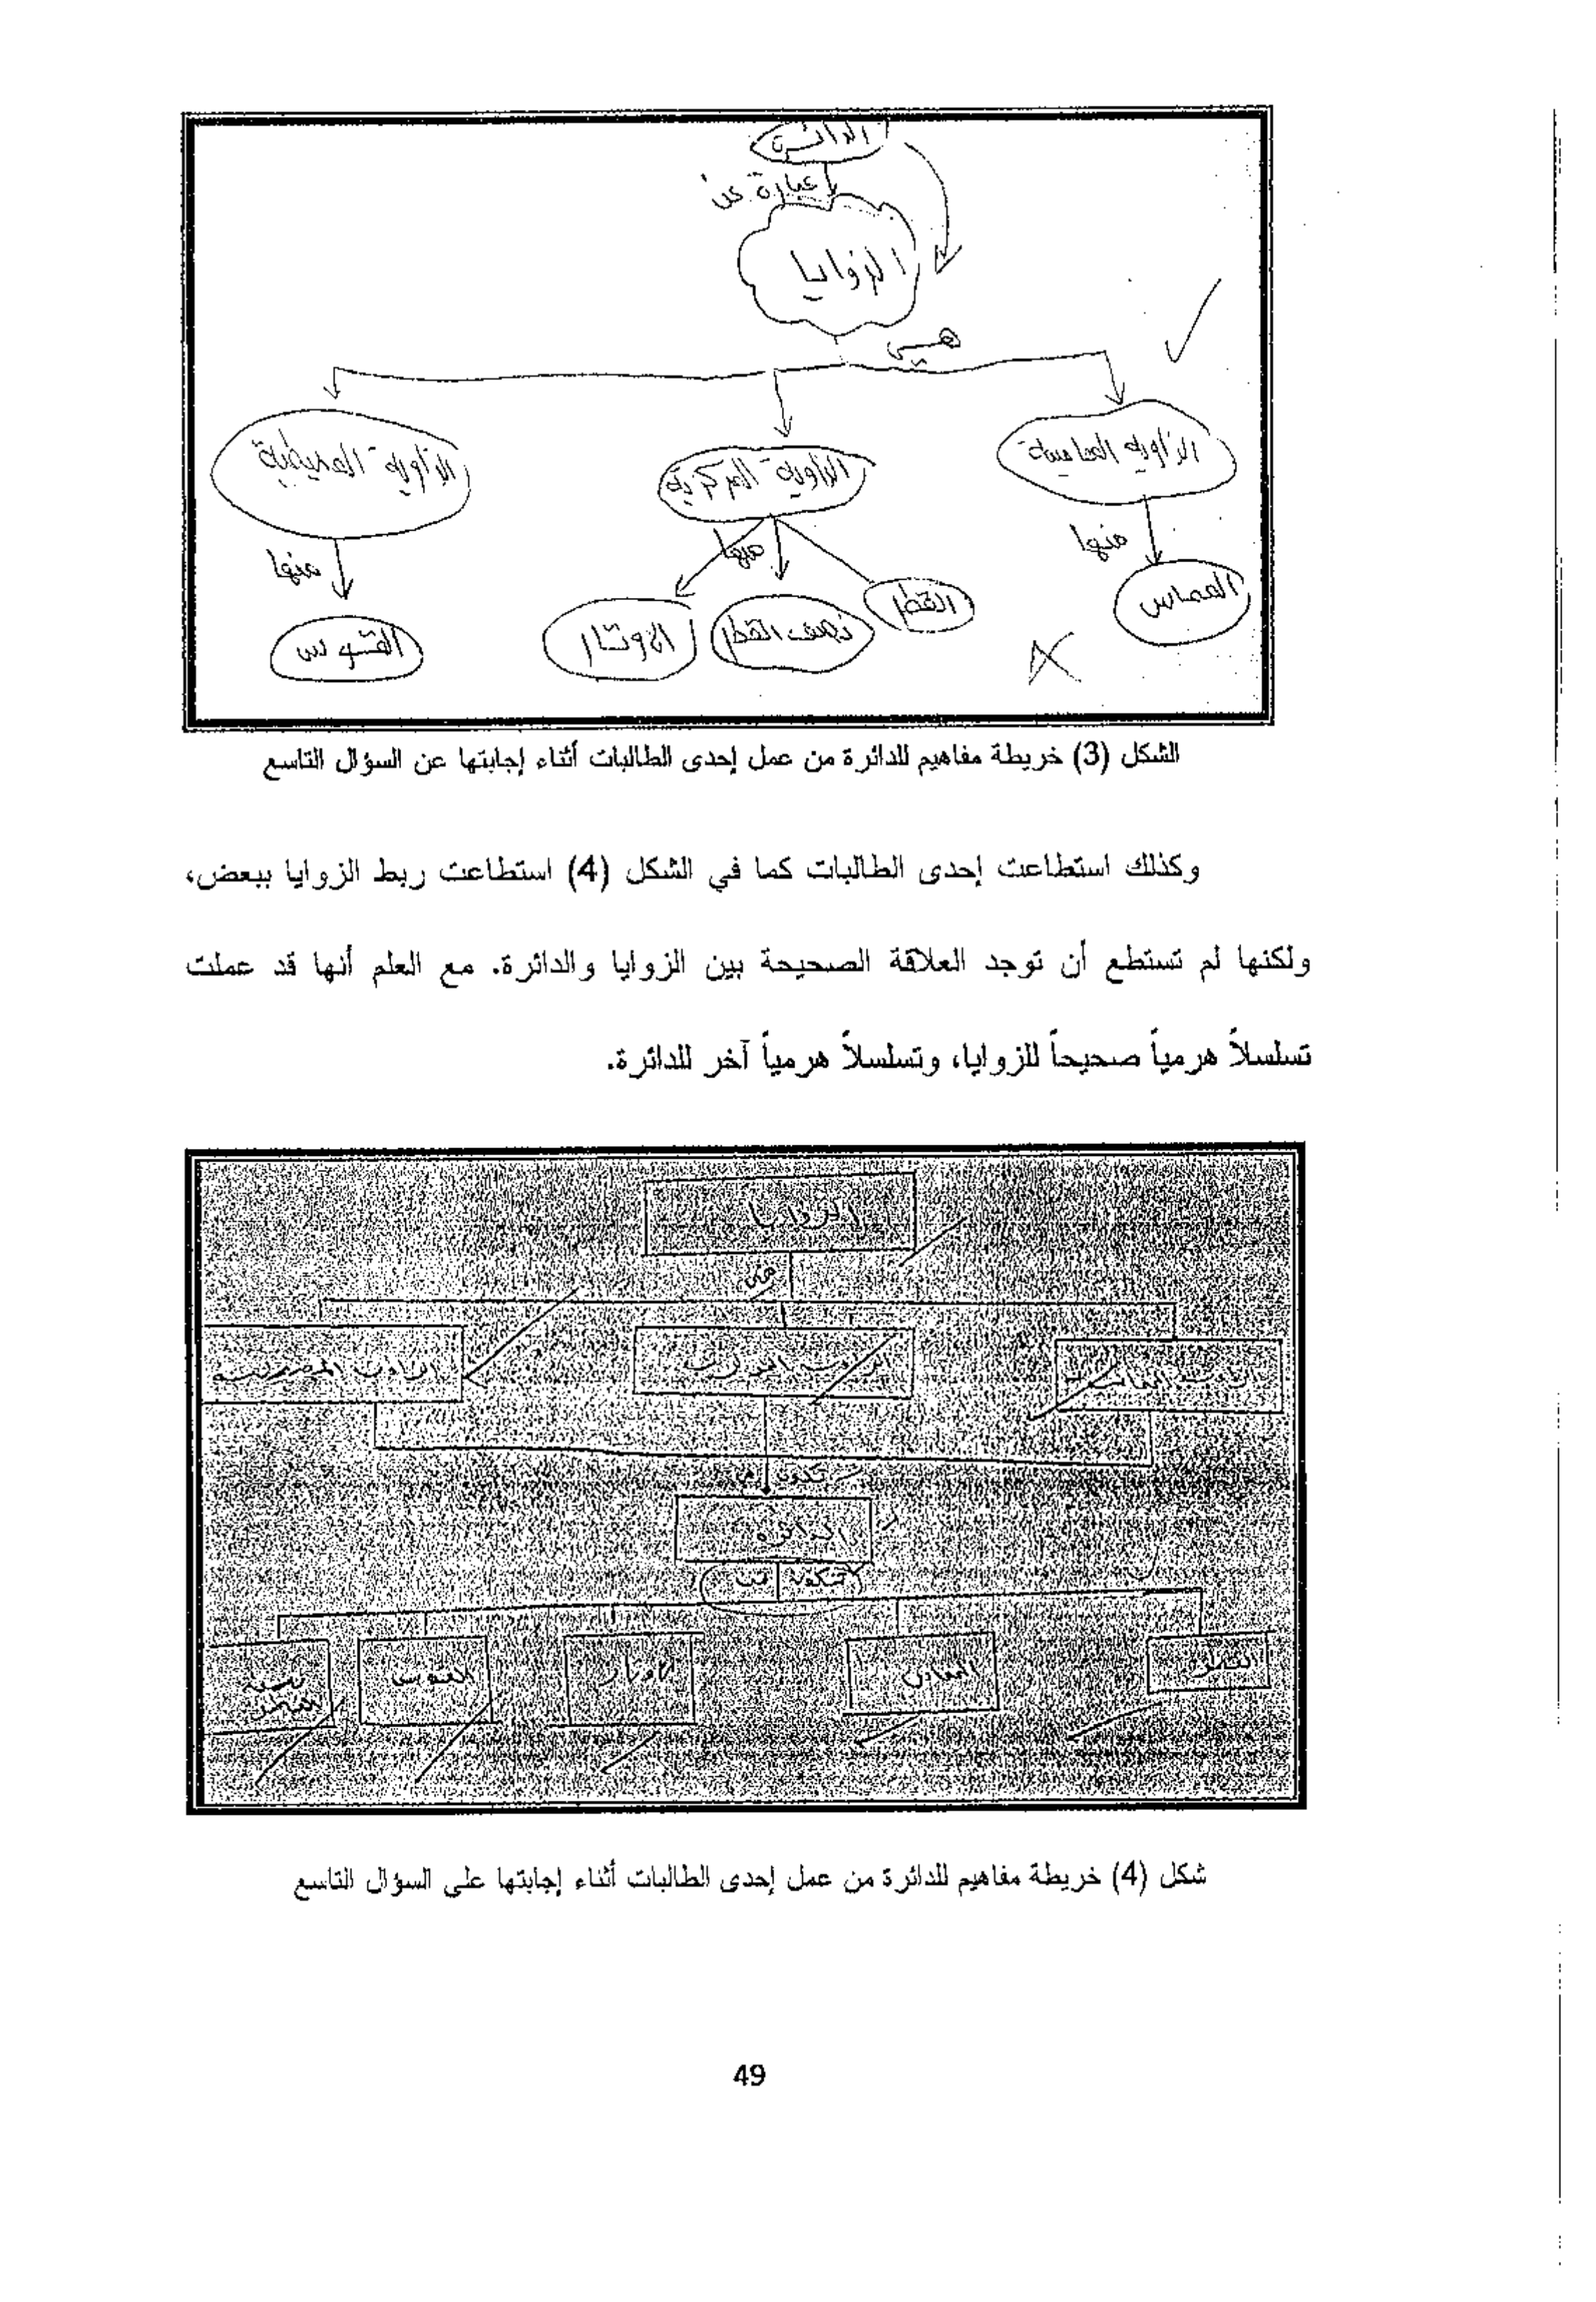 الدائرة
عبارة عن
الزوايا
هي
الزاوية المماسية
الزاوية المركزية
الزاوية المحيطية
منها
منها
منها
المماس
القطر
نصف القطر
الاوتار
القوس
الشكل (3) خريطة مفاهيم للدائرة من عمل إحدى الطالبات أثناء إجابتها عن السؤال التاسع
وكذلك استطاعت إحدى الطالبات كما في الشكل (4) استطاعت ربط الزوايا ببعض،
ولكنها لم تستطع أن توجد العلاقة الصحيحة بين الزوايا والدائرة. مع العلم أنها قد عملت
تسلسلاً هرمياً صحيحاً للزوايا، وتسلسلاً هرمياً آخر للدائرة.
الزوايا
هي
الدائرة
تتكون من
القطر
المماس
الاوتار
القوس
نصف
القطر
شكل (4) خريطة مفاهيم للدائرة من عمل إحدى الطالبات أثناء إجابتها على السؤال التاسع
49